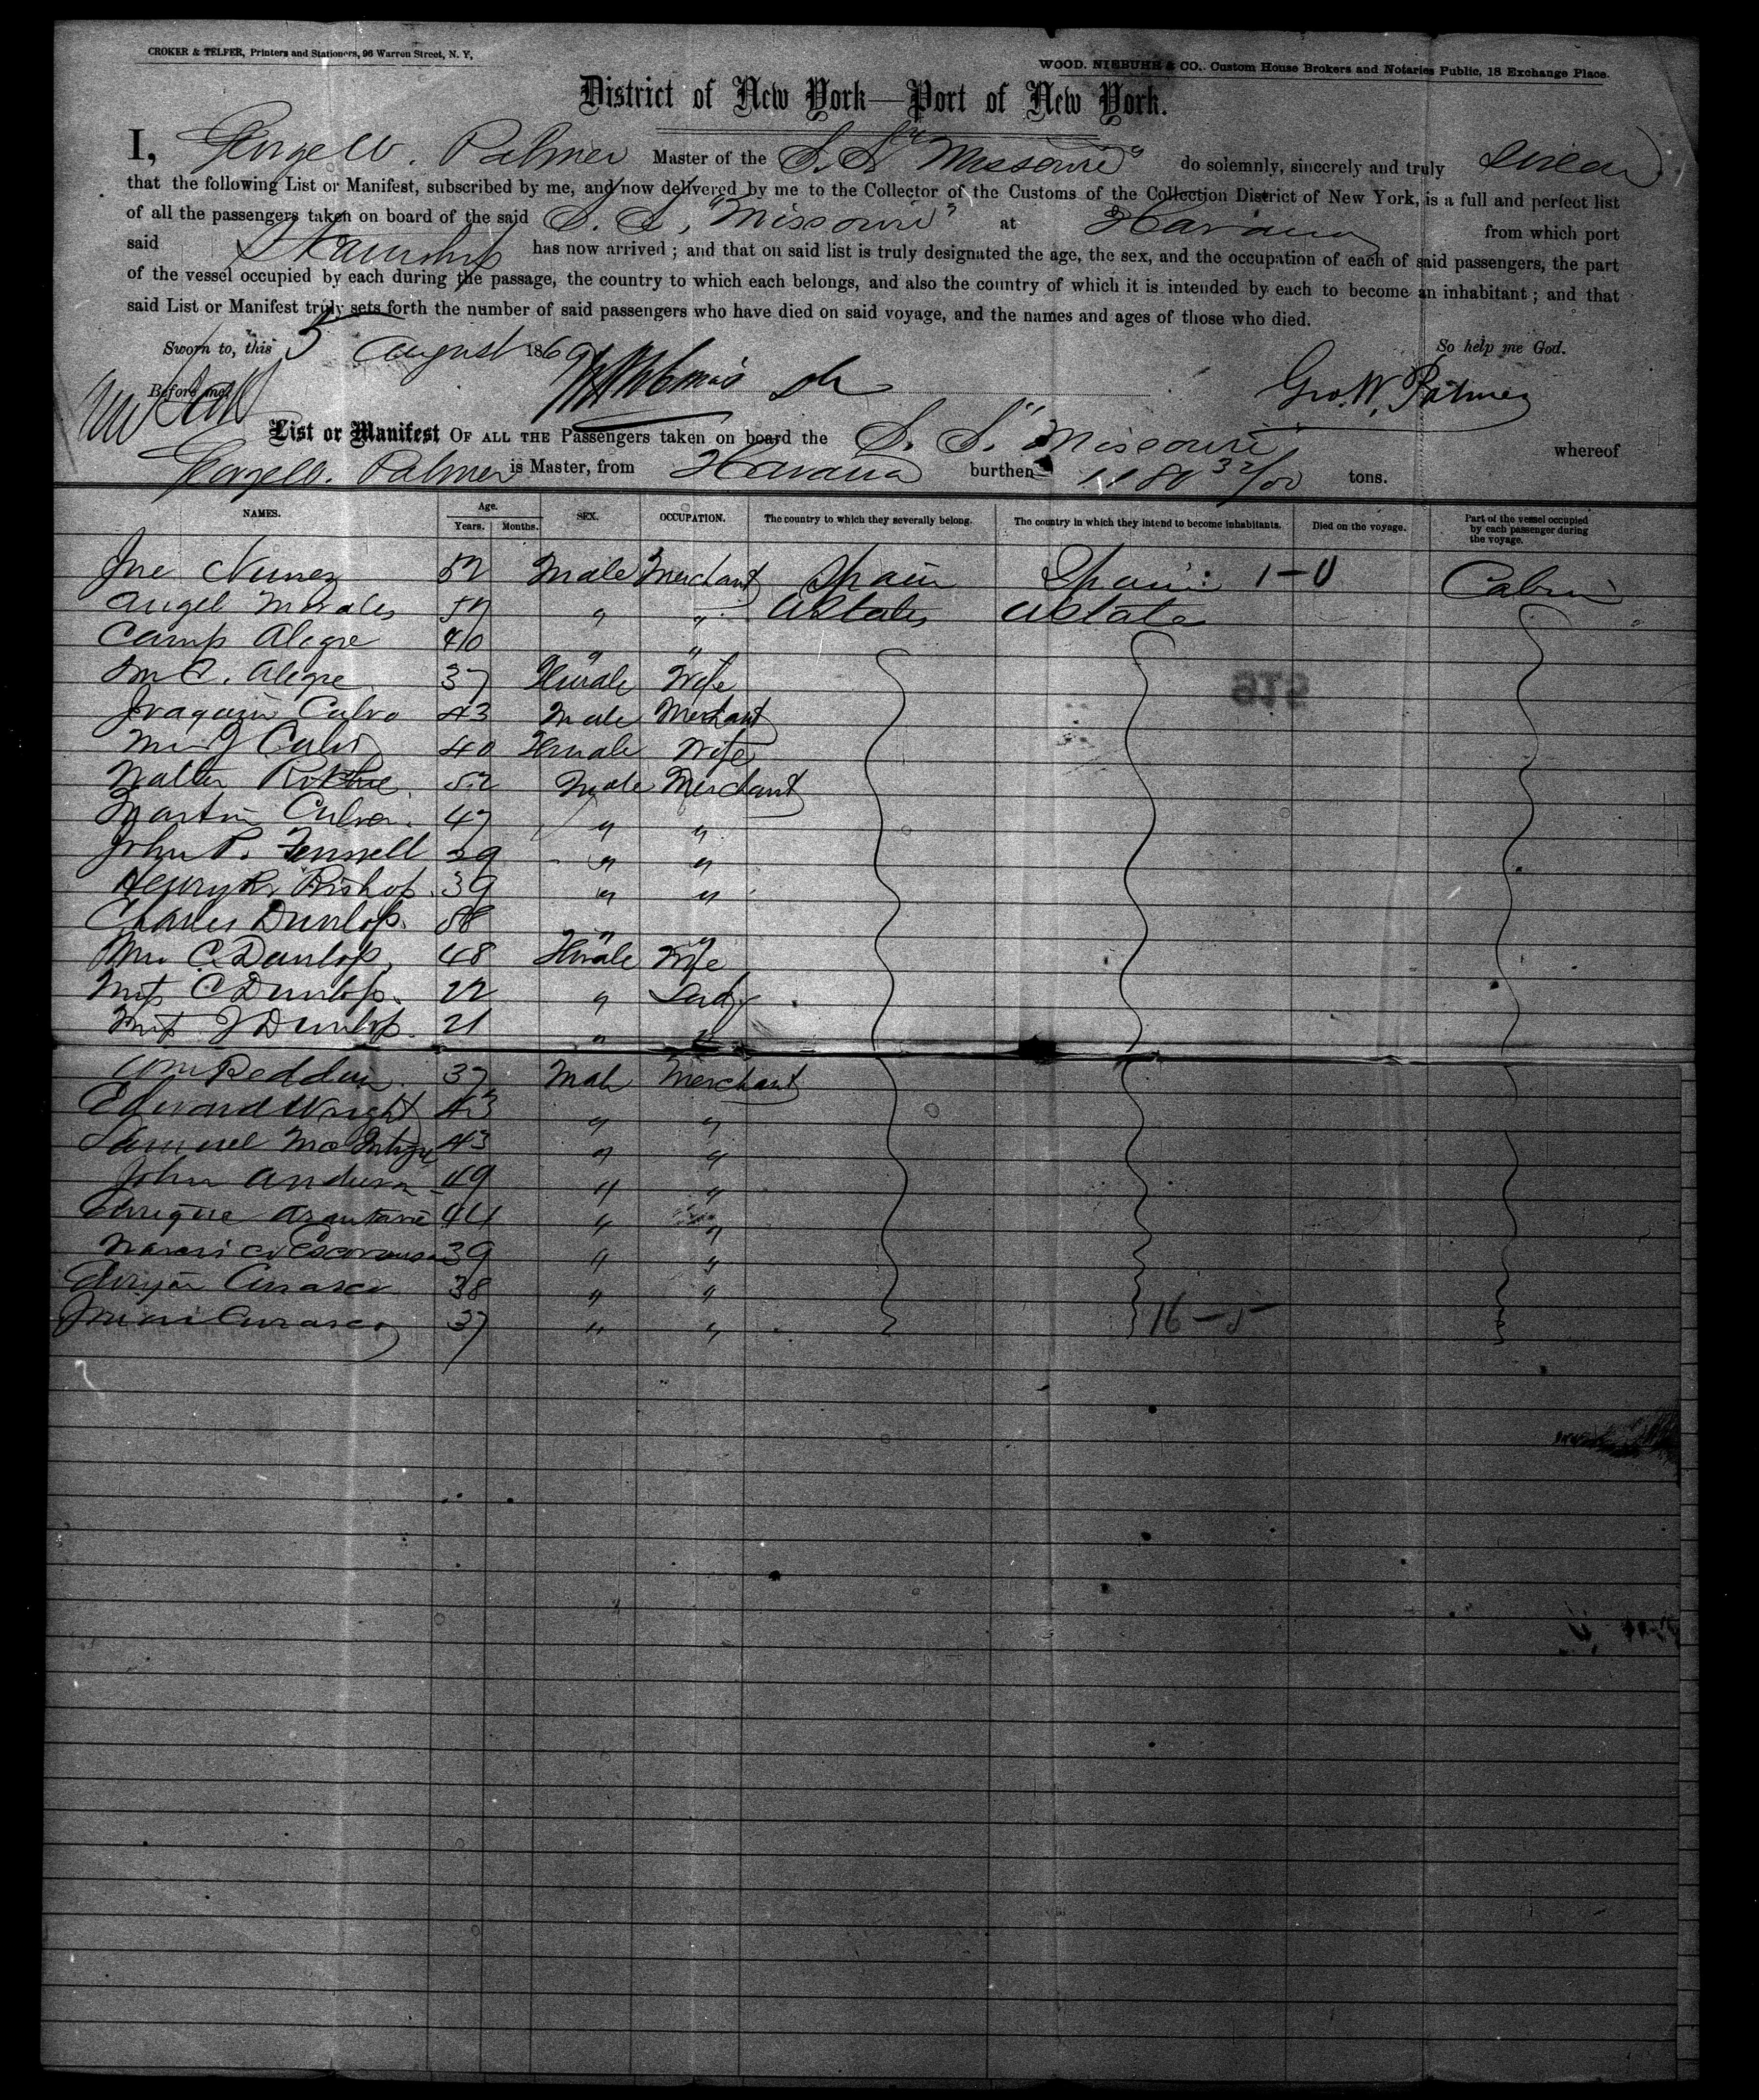 CROKER & TELFER, Printers and Stationers, 96 Warren Street, N. Y,
WOOD. NIEBUHR & CO., Custom House Brokers and Notaries Public, 18 Exchange Place.
District of New York—Port of New York.
I, George W. Palmer Master of the S. S. "Missouri" do solemnly, sincerely and truly swear
that the following List or Manifest, subscribed by me, and now delivered by me to the Collector of the Customs of the Collection District of New York, is a full and perfect list
of all the passengers taken on board of the said S. S. "Missouri" at Havana from which port
said Steamship has now arrived ; and that on said list is truly designated the age, the sex, and the occupation of each of said passengers, the part
of the vessel occupied by each during the passage, the country to which each belongs, and also the country of which it is intended by each to become an inhabitant ; and that
said List or Manifest truly sets forth the number of said passengers who have died on said voyage, and the names and ages of those who died.
Sworn to, this 5 August 1869 So help me God.
Before me, Geo. W. Palmer
List or Manifest OF ALL THE Passengers taken on board the S. S. "Missouri" whereof
George W. Palmer is Master, from Havana burthen 1180 32/00 tons.
NAMES. Age. SEX. OCCUPATION. The country to which they severally belong. The country in which they intend to become inhabitants. Died on the voyage. Part of the vessel occupied by each passenger during the voyage.
Years. Months.
Nunez 52 Male Merchant Spain Spain 1-0 Cabin
Angel Morales 57 " " UStates UState
Camp Alegre 40 " "
M C. Alegre 37 Female Wife
Joaquin Calvo 43 Male Merchant
Calvo 40 Female Wife
Walter 52 Male Merchant
Martin 47 " "
John P. Fennell 29 " "
Henry R. Bishop 39 " "
Charles Dunlop. 58 " "
Mrs C. Dunlop, 48 Female Wife
Miss C Dunlop. 22 " Lady
Miss J Dunlop. 21 " "
Wm Reddin 37 Male Merchant
Edward Wright 43 " "
Samuel McIntyre 43 " "
John Anderson 49 " "
Enrique 44 " "
39 " "
38 " "
37 " " 16-5